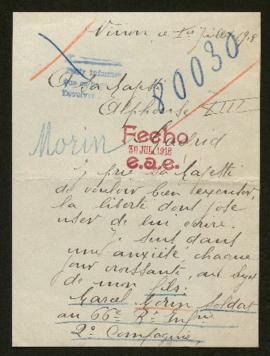 Vinon le 1er Juillet 1918
80030
A Sa Majesté
Alphonse XIII
Madrid
Morin
Fecho
30 JUL. 1918
e.a.e.
Je prie Sa Majesté
de vouloir bien excuser
la liberté dont j'ose
user de lui écrire.
Je suis dans
une anxiété chaque
jour croissante, au sujet
de mon fils
Marcel Morin Soldat
au 66me R. Infrie
2e Compagnie